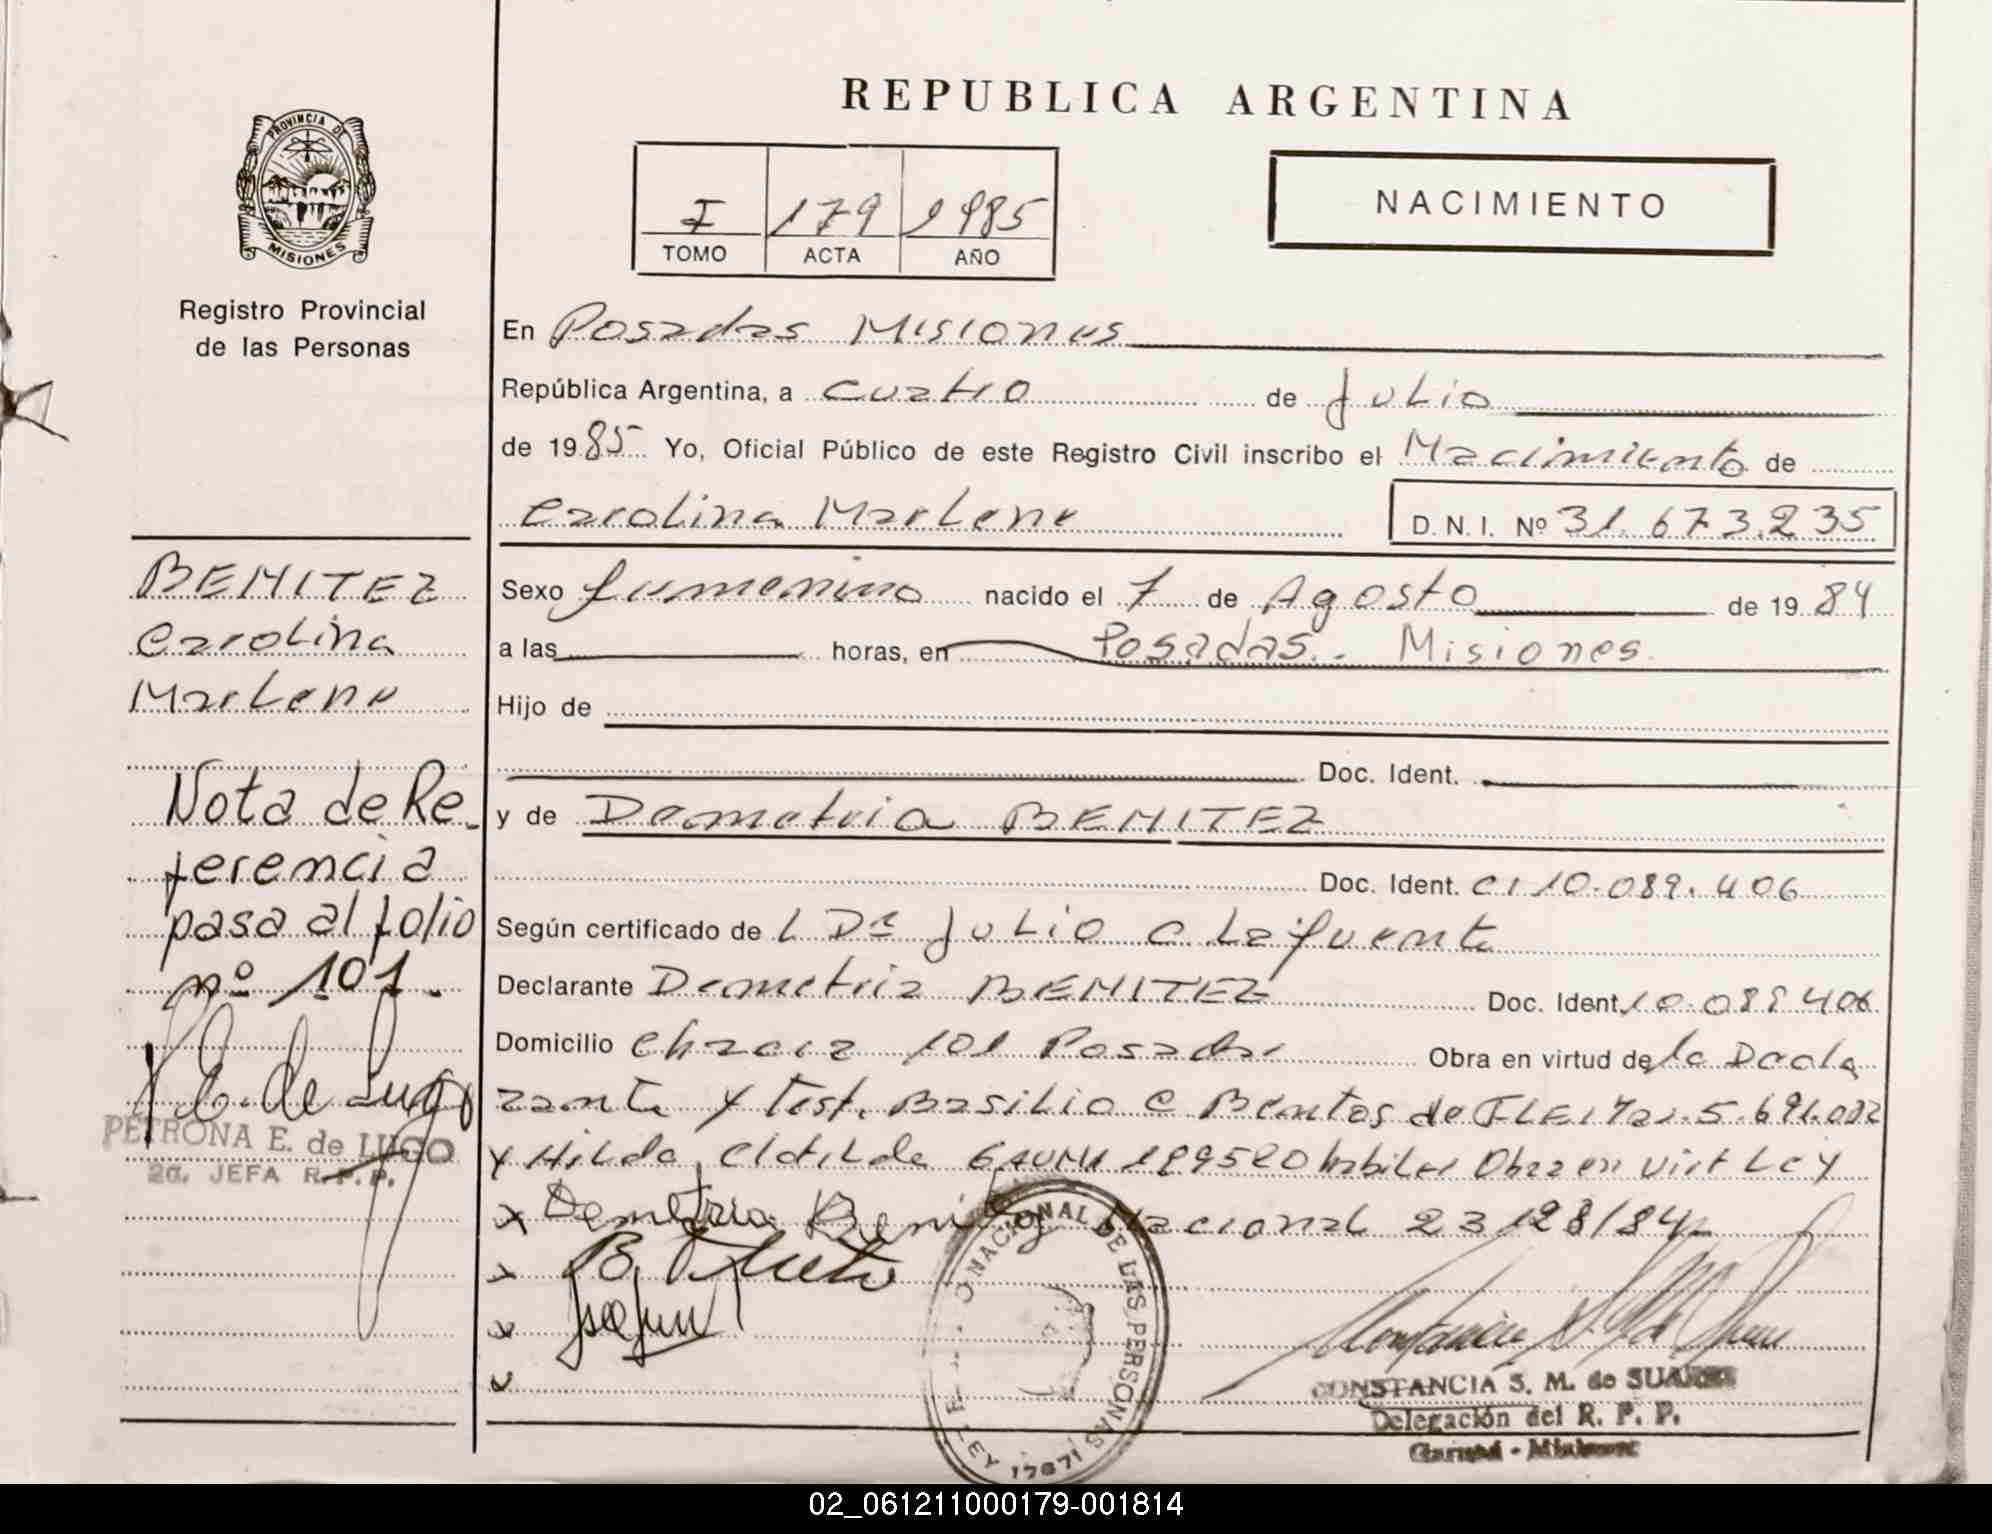 REPUBLICA ARGENTINA
PROVINCIA DE
MISIONES
I 179 1985
TOMO ACTA AÑO
NACIMIENTO
Registro Provincial
de las Personas
En Posadas Misiones
República Argentina, a cuatro de Julio
de 1985 Yo, Oficial Público de este Registro Civil inscribo el Nacimiento de
Carolina Marlene D. N. I. Nº 31.673.235
BENITEZ
Carolina
Marlene
Sexo femenino nacido el 7 de Agosto de 1984
a las horas, en Posadas. Misiones
Hijo de
Doc. Ident.
y de Demetria BENITEZ
Doc. Ident. CI 10.089.406
Según certificado del Dr Julio C Lafuente
Declarante Demetria BENITEZ Doc. Ident. 10.089.406
Domicilio Chacra 101 Posadas Obra en virtud de la Decla
rante y Test. Basilio C Benitos de
y Hilda Clotilde habiles Obra en virt Ley
Demetria Benitez Nacional 23128/84
Nota de Re-
ferencia
pasa al folio
nº 101.
P. E. de Lugo
PETRONA E. de LUGO
2a. JEFA R.P.P.
NACIONAL DE LAS PERSONAS
LEY 17671
CONSTANCIA S. M. de SUAREZ
Delegación del R. P. P.
Garupá - Misiones
02_061211000179-001814